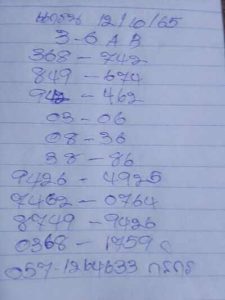 12/6/65
3-6 A B
368 - 742
849 - 674
942 - 462
03 - 06
08 - 36
38 - 86
9426 - 4925
7462 - 0764
8749 - 9426
0368 - 1759
057-1264633